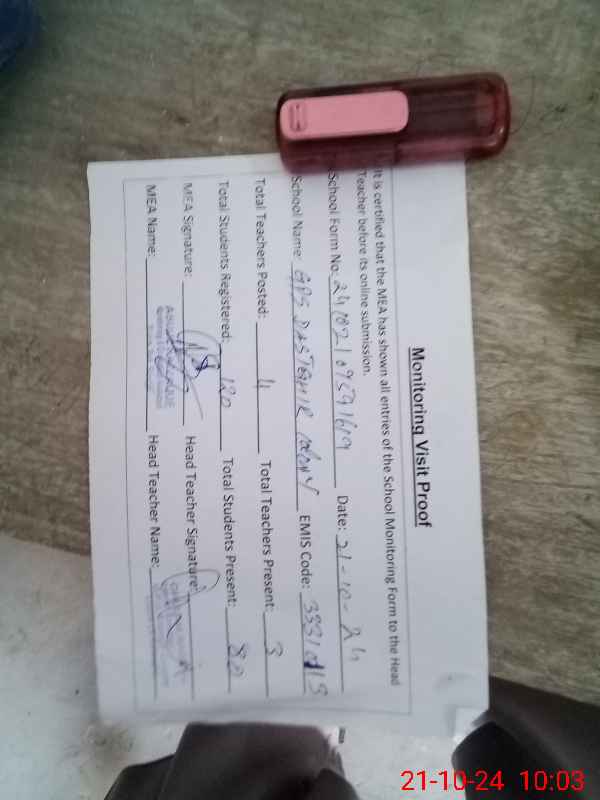 Monitoring Visit Proof
It is certified that the MEA has shown all entries of the School Monitoring Form to the Head
Teacher before its online submission.
School Form No: Date: 21-10-24
School Name: GPS DASTGHIR COLONY EMIS Code:
Total Teachers Posted: 4 Total Teachers Present: 3
Total Students Registered: 120 Total Students Present: 80
MEA Signature: Head Teacher Signature:
MEA Name: Head Teacher Name:
21-10-24 10:03